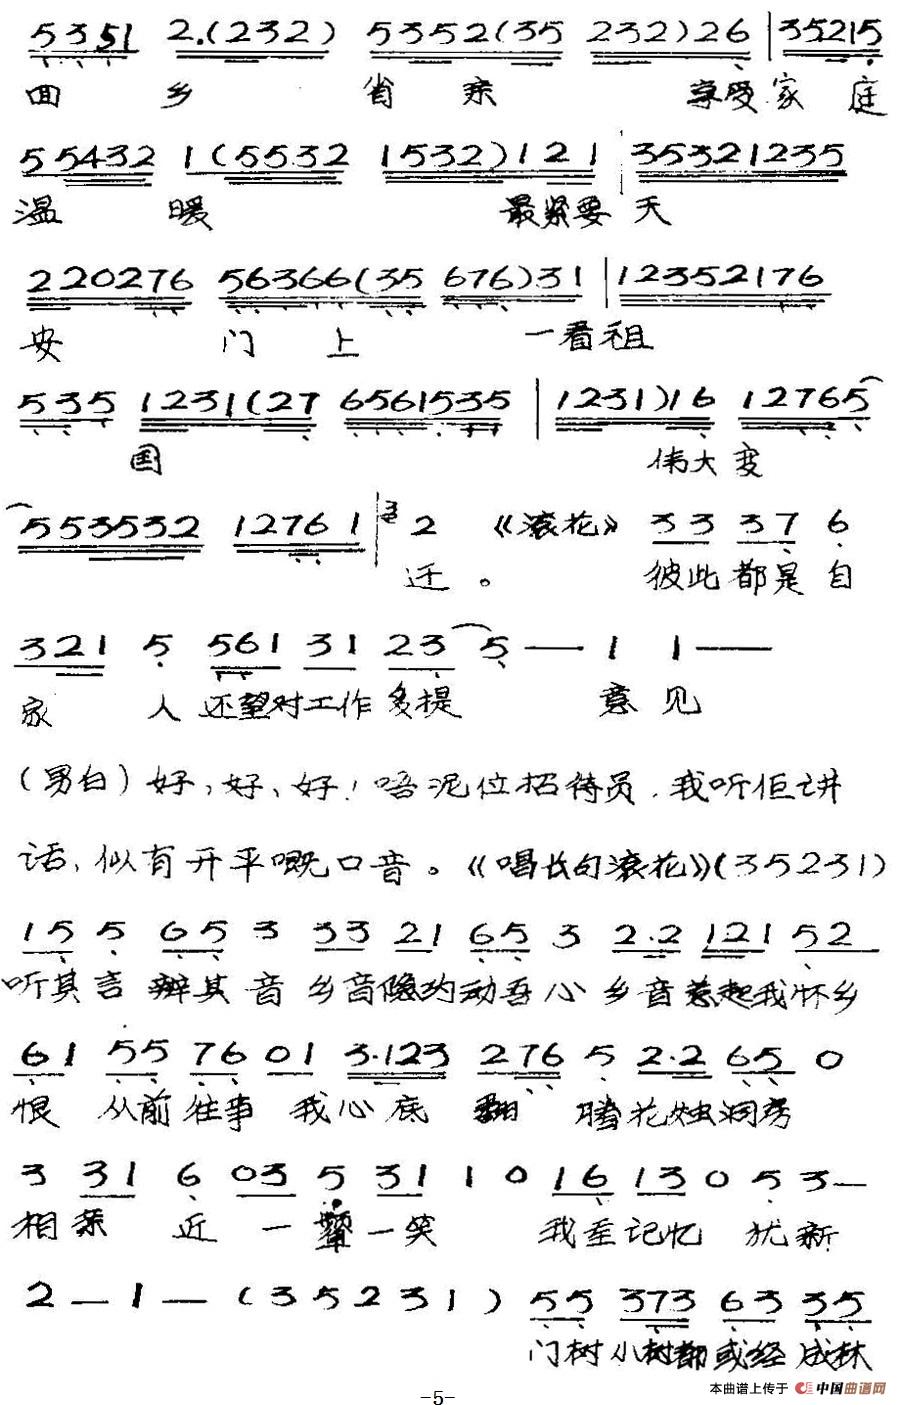 5351 2.(232) 5352(35 232)26 | 35215
回 乡 省 亲 享受家 庭
55432 1(5532 1532)121 35321235
温 暖 最紧要 天
220276 56366(35 676)31 | 12352176
安 门 上 一看祖
535 1231(27 6561535 | 1231)16 12765
国 伟大变
553532 12761 | 3 2 《滚花》 33 37 6
迁。 彼此都是自
321 5 561 31 23 5 — 1 1 —
家 人 还望对工作多提 意见
(男白)好,好、好!唔泥位招待员,我听佢讲
话,似有开平嘅口音。《唱长句滚花》(35231)
15 5 65 3 33 21 65 3 2.2 121 52
听其言 辨其音 乡音隐约动吾心 乡音惹起我怀乡
61 55 76 01 3.123 276 5 2.2 65 0
恨 从前往事 我心底 翻 腾花烛洞房
3 31 6 03 5 31 1 0 16 13 0 5 3—
相亲 近 一颦一笑 我至记忆 犹新
2 — 1 — (35231) 55 373 63 35
门树小树都或经成林
-5-
本曲谱上传于 中国曲谱网